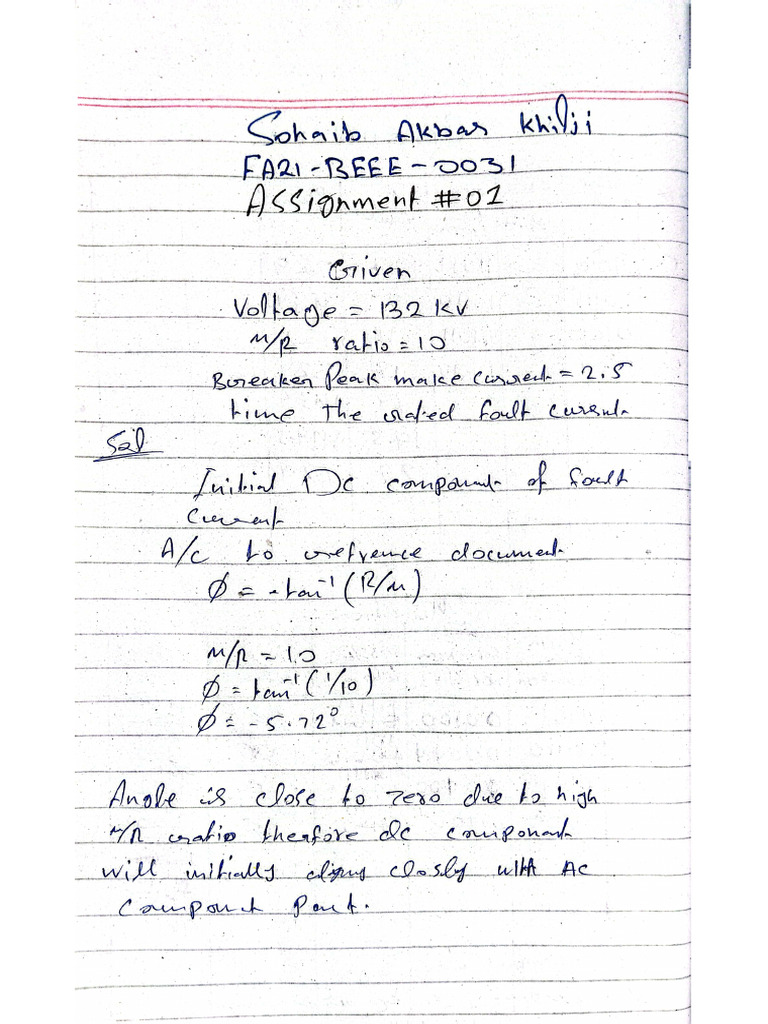 Sohaib Akbar Khilji
FA21-BEEE-0031
Assignment #01
Given
Voltage = 132 kv
X/R ratio = 10
Breaker Peak make current = 2.5
time the rated fault current
Sol
Initial Dc component of fault
Current
A/c to refrence document
Ø = -tan⁻¹ (R/X)
X/R = 10
Ø = tan⁻¹ (1/10)
Ø = -5.72°
Angle is close to zero due to high
X/R ratio therfore dc component
will initially closly with AC
Component Part.